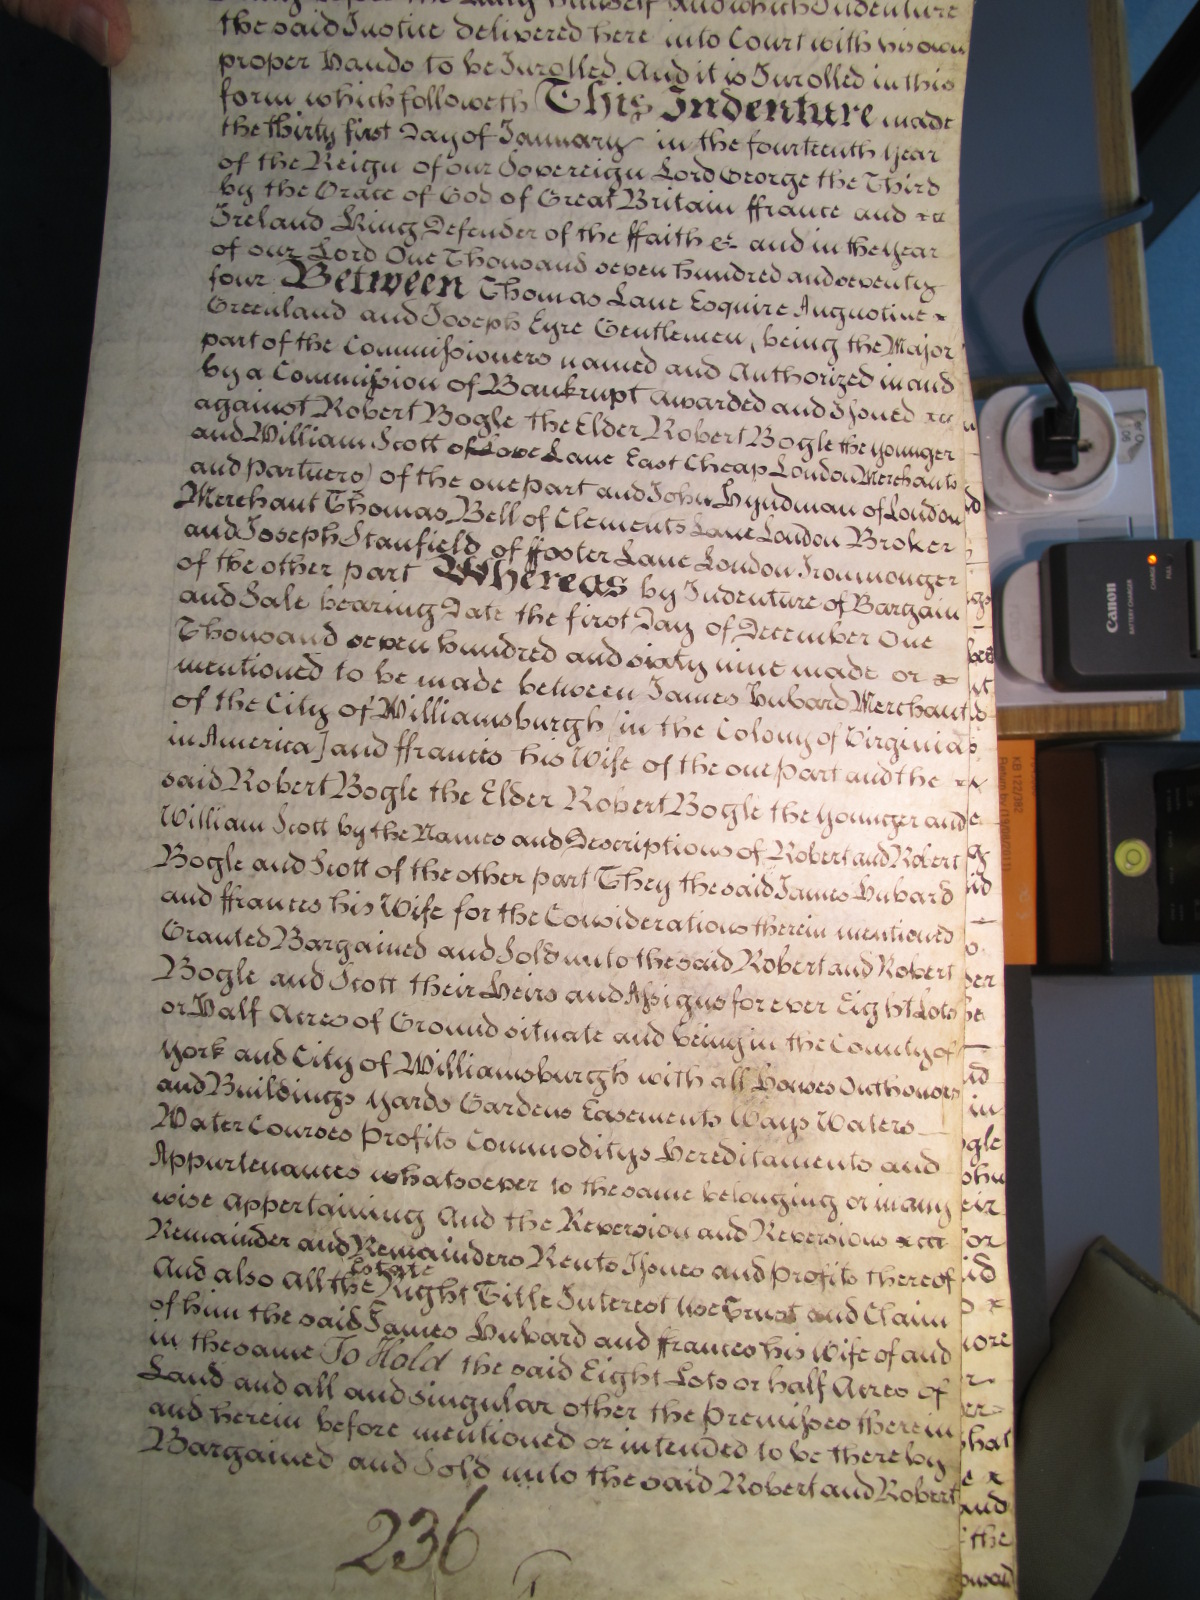 the said Justice delivered here into Court with his own
proper Hands to be Inrolled And it is Inrolled in this
form which followeth This Indenture made
the thirty first Day of January in the fourteenth Year
of the Reign of our Sovereign Lord George the Third
by the Grace of God of Great Britain ffrance and
Ireland King Defender of the ffaith &c and in the Year
of our Lord One Thousand seven hundred and seventy
four Between Thomas Lane Esquire Augustine
Greenland and Joseph Eyre Gentlemen, being the Major
part of the Commissioners named and Authorized in and
by a Commission of Bankrupt awarded and Issued
against Robert Bogle the Elder Robert Bogle the younger
and William Scott of Love Lane East Cheap London Merchants
and Partners) of the one part and John Hyndman of London
Merchant Thomas Bell of Clements Lane London Broker
and Joseph Stanfield of ffoster Lane London Ironmonger
of the other part Whereas by Indenture of Bargain
and Sale bearing Date the first Day of December One
Thousand seven hundred and sixty nine made or
mentioned to be made between James Hubard Merchant
of the City of Williamsburgh [in the Colony of Virginia
in America] and ffrances his Wife of the one part and the
said Robert Bogle the Elder Robert Bogle the younger and
William Scott by the Names and Descriptions of Robert and Robert
Bogle and Scott of the other part They the said James Hubard
and ffrances his Wife for the Considerations therein mentioned
Granted Bargained and Sold unto the said Robert and Robert
Bogle and Scott their Heirs and Assigns for ever Eight Lots
or Half Acres of Ground situate and being in the County of
York and City of Williamsburgh with all Houses Outhouses
and Buildings Yards Gardens Easements Ways Waters
Water Courses Profits Commoditys Hereditaments and
Appurtenances whatsoever to the same belonging or in any
wise Appertaining And the Reversion and Reversions
Remainder and Remainders Rents Issues and Profits thereof
And also All the Estate Right Title Interest Use Trust and Claim
of him the said James Hubard and ffrances his Wife of and
in the same To Hold the said Eight Lots or half Acres of
Land and all and singular other the Premisses therein
and herein before mentioned or intended to be thereby
Bargained and Sold unto the said Robert and Robert
236
Canon
BATTERY CHARGER
CHARGE
FULL
KB 122/382